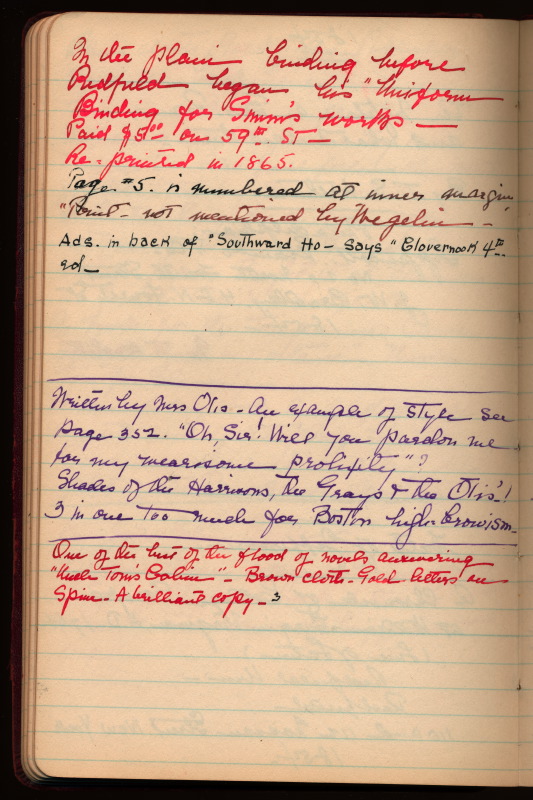 In the plain binding before
Redfield began his "Uniform
Binding for Simm's works —
Paid $5.00 on 59th ST —
Re-printed in 1865.
Page #5. is numbered at inner margin
"Point - not mentioned by Wegelin —"
Ads. in back of "Southward Ho - says "Clovernook 4th
ed —
Written by Mrs Otis - An example of style see
page 352. "Oh, Sir! Will you pardon me
for my wearisome prolixity"?
Shades of the Harrisons, the Grays & the Otis'!
3 in one too much for Boston high-browism —
One of the best of the flood of novels answering
"Uncle Tom's Cabin" - Brown cloth - Gold letters on
Spine - A brilliant copy - 3